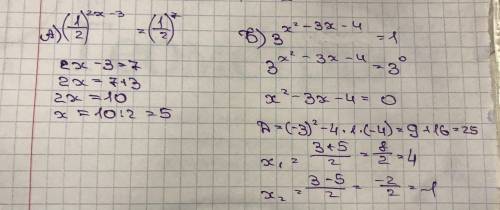 А) (1/2)^(2x-3) = (1/2)^7
2x-3=7
2x=7+3
2x=10
x=10:2=5
Б) 3^(x²-3x-4) = 1
3^(x²-3x-4) = 3^0
x²-3x-4=0
D=(-3)²-4·1·(-4)=9+16=25
x₁ = (3+5)/2 = 8/2 = 4
x₂ = (3-5)/2 = -2/2 = -1